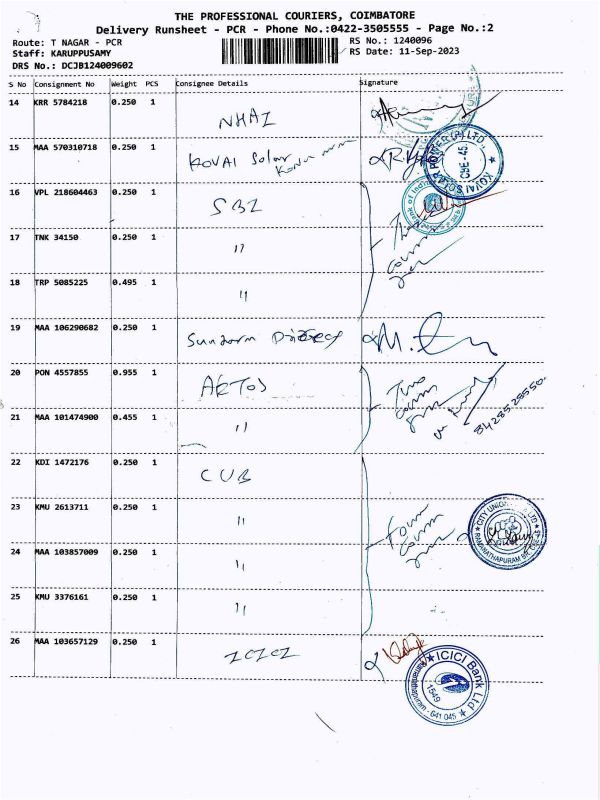 THE PROFESSIONAL COURIERS, COIMBATORE
Delivery Runsheet - PCR - Phone No.:0422-3505555 - Page No.:2
Route: T NAGAR - PCR
RS No.: 1240096
Staff: KARUPPUSAMY
RS Date: 11-Sep-2023
DRS No.: DCJB124009602
S No Consignment No Weight PCS Consignee Details Signature
14 KRR 5784218 0.250 1 NHAI
15 MAA 570310718 0.250 1 KOVAI Solar
KOVAI SOLAR POWER (P) LTD., CBE-45
16 VPL 218604463 0.250 1 SBI
17 TNK 34150 0.250 1 "
18 TRP 5085225 0.495 1 "
19 MAA 106290682 0.250 1 Sundarm
20 PON 4557855 0.955 1 AETOS
21 MAA 101474900 0.455 1 "
22 KDI 1472176 0.250 1 CUB
23 KMU 2613711 0.250 1 "
Four
CITY UNION
RAMANATHAPURAM
24 MAA 103857009 0.250 1 "
25 KMU 3376161 0.250 1 "
26 MAA 103657129 0.250 1 ICICI
ICICI Bank Ltd
1549
Ramanathapuram - 641 045